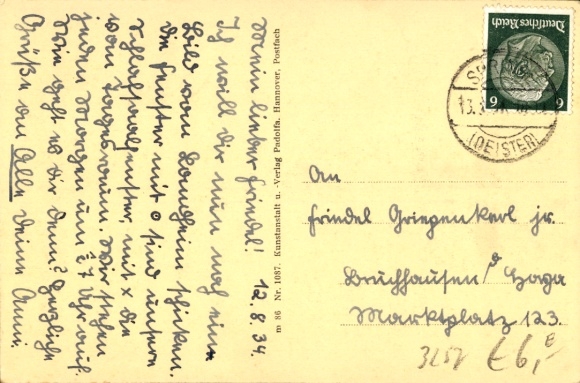 Mein lieber Friedel! 12.8.34.
Ich will dir nun noch ein
Bild vom Landheim schicken.
Die Fenster mit o sind unsere
Schlafsaalfenster, mit x die
vom Tagesraum. Wir stehen
jeden Morgen um ½7 Uhr auf.
Wie geht es dir denn? Herzliche
Grüße an Alle Deine Anni.
m 86 Nr. 1087. Kunstanstalt u. -Verlag Padolfa, Hannover, Postfach
Deutsches Reich
6 6
SPRINGE
13.
(DEISTER)
An
Friedel Griepenkerl jr.
Bruchhausen/ Hoya
Marktplatz 123.
3257 € 6,-